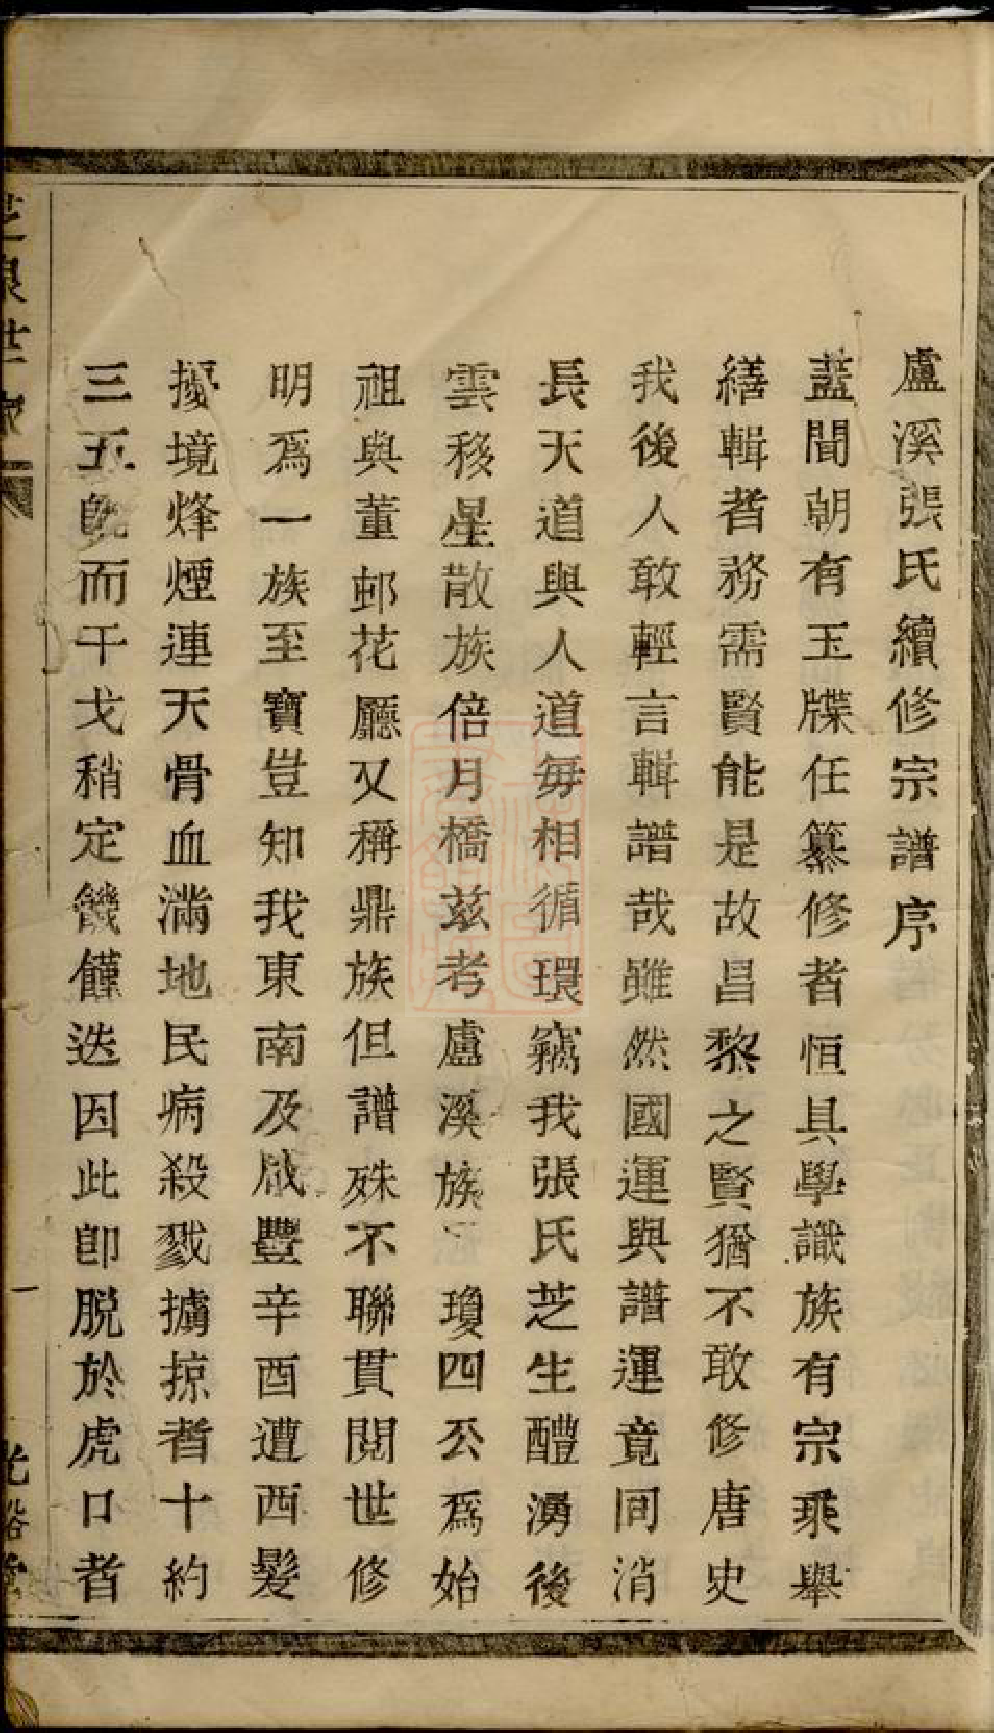 盧溪張氏續修宗譜序
蓋聞朝有玉牒任纂修者恒具學識族有宗乘舉
繕輯者務需賢能是故昌黎之賢猶不敢修唐史
我後人敢輕言輯譜哉雖然國運與譜運竟同消
長天道與人道每相循環竊我張氏芝生醴湧後
雲移星散族倍月橋茲考盧溪族 瓊四公為始
祖與董邨花廳又稱鼎族但譜殊不聯貫閱世修
明爲一族至寶豈知我東南及咸豐辛酉遭西髮
擾境烽煙連天骨血滿地民病殺戮擄掠者十約
三五旣而干戈稍定饑饉迭因此卽脱於虎口者
芝泉世家
一
光裕堂